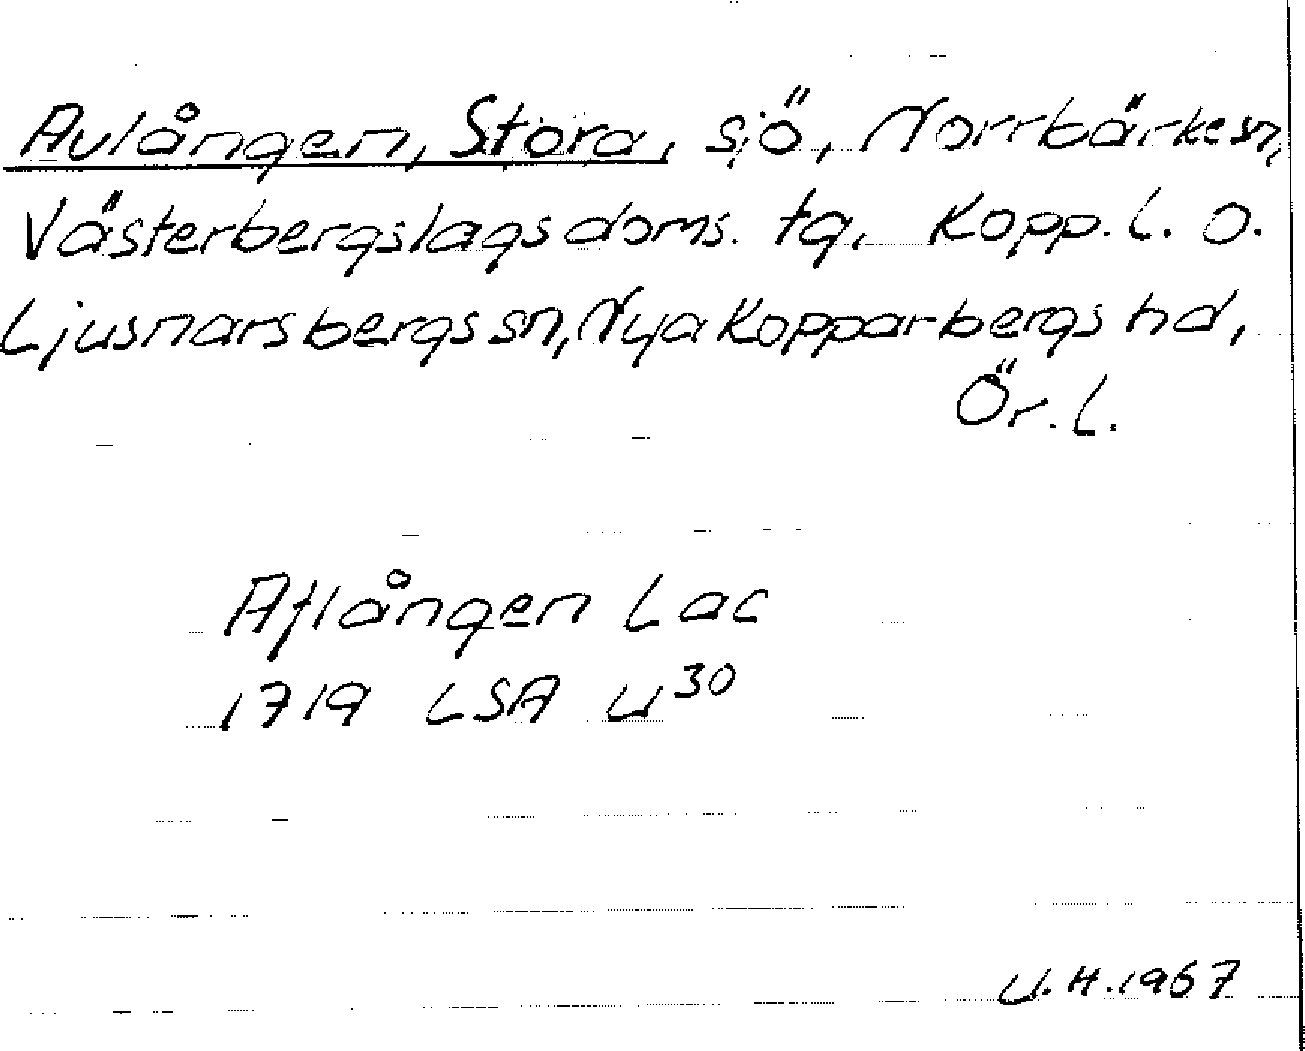 Avlången, Stora, sjö, Norrbärke sn,
Västerbergslags doms. tg, Kopp. l. o.
Ljusnarsbergs sn, Nya Kopparbergs hd,
Ör. l.
Aflången Lac
1719 LSA U30
U.H. 1967